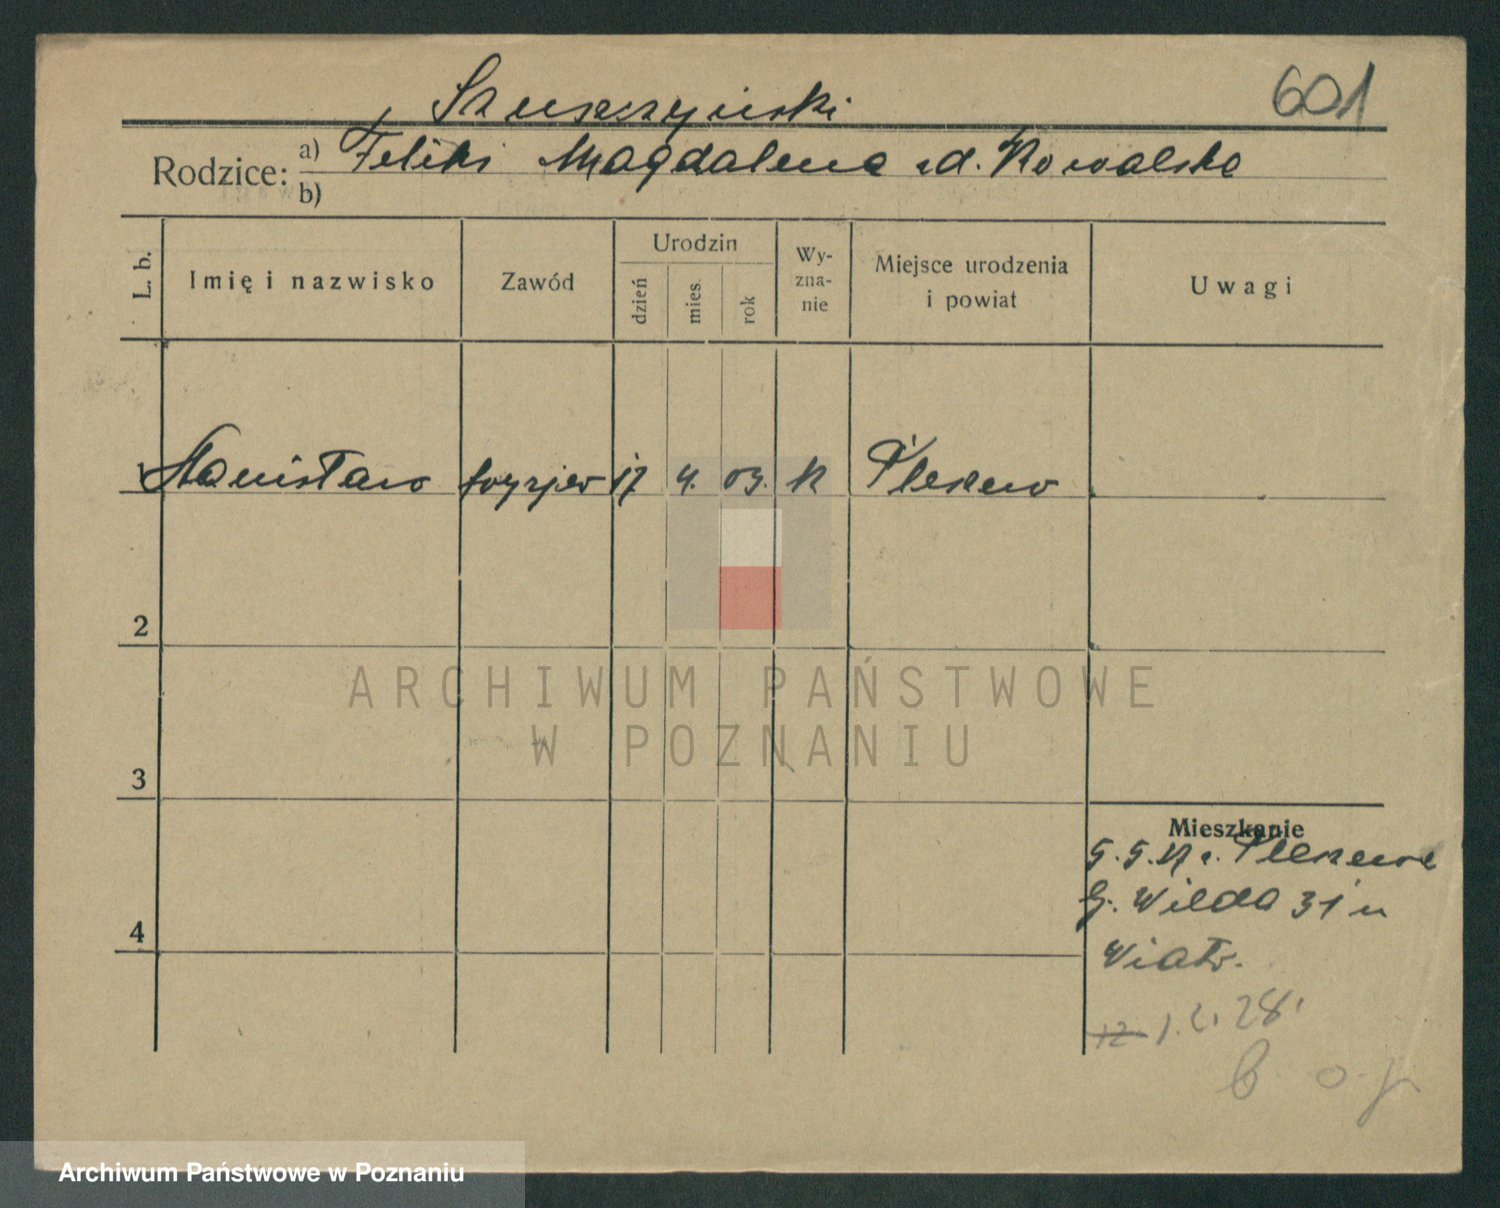 601
Szuszczyński
Rodzice: a) Feliks Magdalena zd. Kowalska
b)
L. b. Imię i nazwisko Zawód Urodzin dzień mies. rok Wyznanie Miejsce urodzenia i powiat Uwagi
1 Stanisław fryzjer 17 4. 03. K Pleszew
2
ARCHIWUM PAŃSTWOWE
W POZNANIU
3
Mieszkanie
5.5. z. Pleszewa
G. Wilda 31 u
4
Wiatr.
12 1. 2. 28.
Archiwum Państwowe w Poznaniu